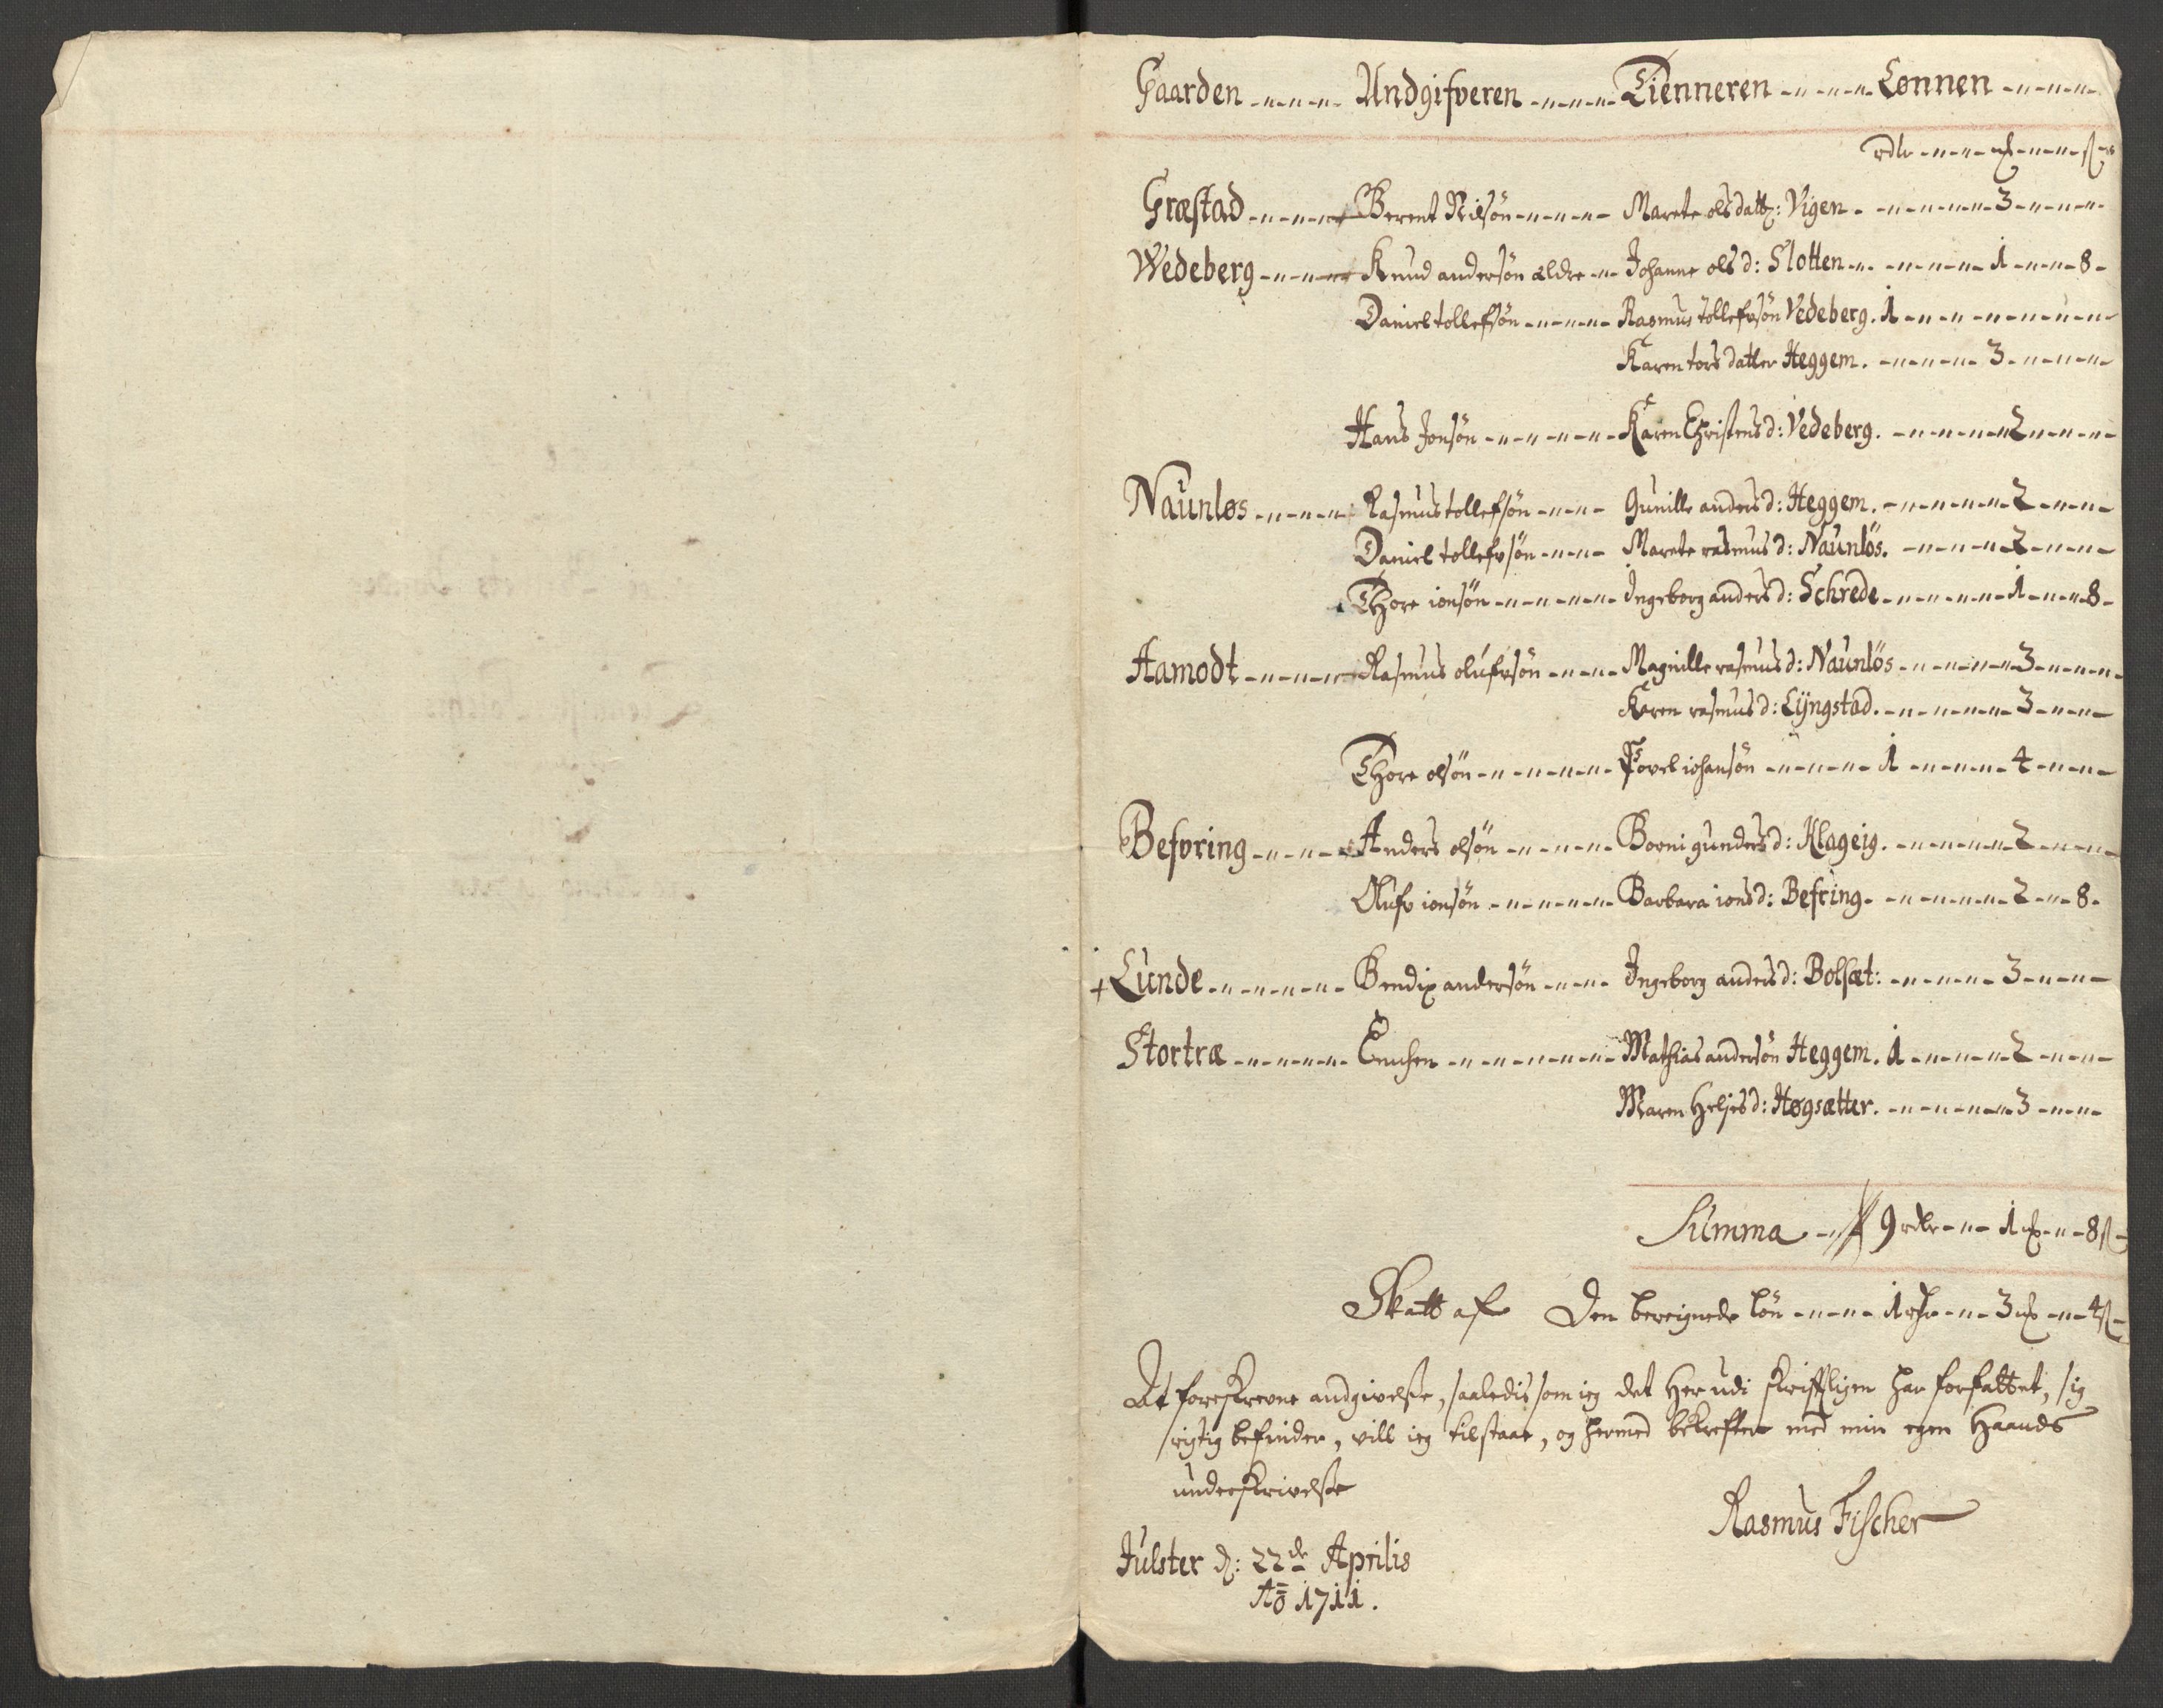 Gaarden Andgifveren Tienneren Lønnen
rdlr ß
Græstad Berent Nilsön Marete olsdatt: Vigen. 3
Wedeberg Knud andersön ældre Johanne olsd: Slotten 1 8
Daniel tollefsön Rasmus tollefsön Vedeberg. 1
Karen torsdatter Heggem. 3
Hans Jonsön Karen Christensd: Vedeberg. 2
Naunløs Rasmus tollefsön Gunille andersd: Heggem. 2
Daniel tollefsön Marete rasmusd: Naunlös. 2
Thore ionsön Ingeborg andersd: Schrede 1 8
Aamodt Rasmus olufsön Magnille rasmusd: Naunlös 3
Karen rasmusd: Lyngstad. 3
Thore olsön Povel iohansön 1 4
Befvring Anders olsön Borni gundersd: Klageig. 2
Olufv ionsön Barbara ionsd: Befring. 2 8
+ Lunde Bendix andersön Ingeborg andersd: Bolsæt: 3
Stortræ Enchen Mathias andersön Heggem. 1 2
Maren Heljesd: Høgsætter. 3
Summa 9 rdlr 1 8 ß
Skatt af Den beregnede lön 1 3 4 ß
At foreskrevne andgivelse, saaledis som ieg det her udi skriftligen har forfattet, sig
rigtig befinder, vill ieg tilstaae, og hermed bekrefter med min egen Haands
underskrivelse
Rasmus Fischer
Julster d: 22de Aprilis
Ao 1711.